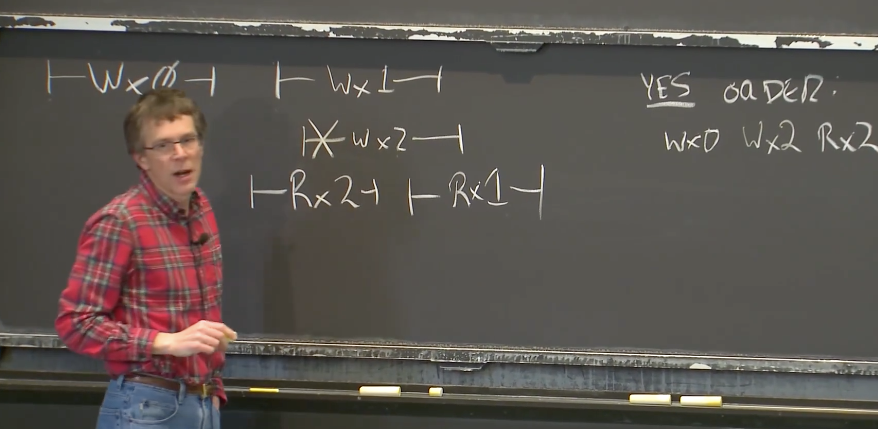 |-Wx0-| |-Wx1-|
|-Wx2-|
|-Rx2-| |-Rx1-|
YES ORDER:
Wx0 Wx2 Rx2